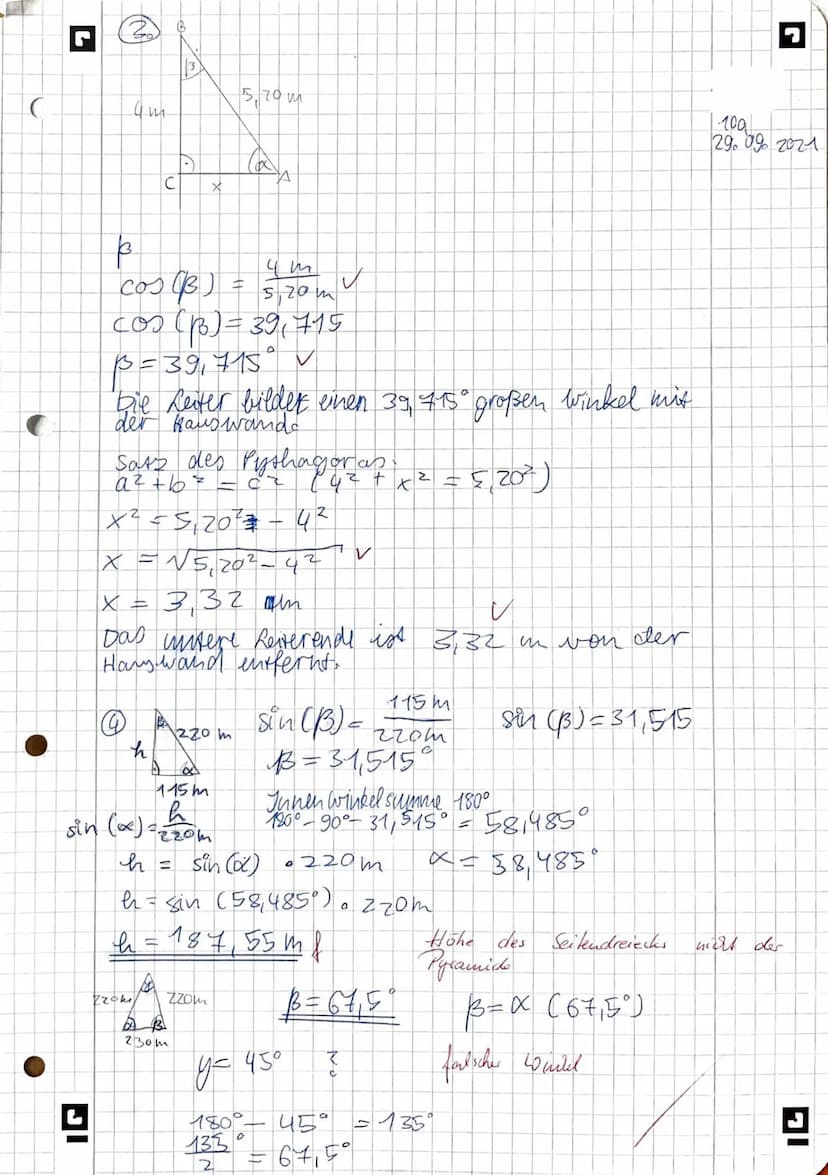 2.
B
β
4m
5,20m
α
C
x
A
10a
29. 09. 2021
β
cos(β) = 4 m / 5,20 m ✓
cos(β) = 39,715
β = 39,715° ✓
Die Leiter bildet einen 39,715° großen Winkel mit
der Hauswand.
Satz des Pythagoras:
a² + b² = c² (4² + x² = 5,20²)
x² = 5,20² - 4²
x = √5,20² - 4² ✓
x = 3,32 m
✓
Das untere Leiterende ist 3,32 m von der
Hauswand entfernt.
4
β
220 m
h
α
115m
sin(β) = 115m / 220m
sin(β) = 31,515
β = 31,515°
Innenwinkelsumme 180°
180° - 90° - 31,515° = 58,485°
sin(α) = h / 220m
h = sin(α) · 220m
α = 58,485°
h = sin (58,485°) · 220m
h = 187,55m f
Höhe des Seitendreiecks nicht der
Pyramide
220m
220m
α
β
230m
β = 67,5°
β = α (67,5°)
y = 45° ?
falscher Winkel
180° - 45° = 135°
135° / 2 = 67,5°